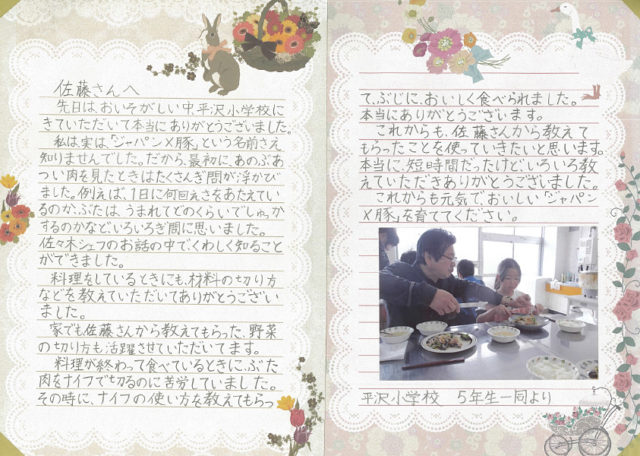 佐藤さんへ
先日は、おいそがしい中、平沢小学校に
きていただいて本当にありがとうございました。
私は実は、「ジャパンX豚」という名前さえ
知りませんでした。だから、最初に、あのぶあ
つい肉を見たときはたくさんぎ問が浮かび
ました。例えば、1日に何回えさをあたえてい
るのか、ぶたは、うまれてどのくらいでしゅっか
するのかなどいろいろぎ問に思いました。
佐々木シェフのお話の中でくわしく知ること
ができました。
料理をしているときにも、材料の切り方
などを教えていただいてありがとうござい
ました。
家でも佐藤さんから教えてもらった、野菜
の切り方も活躍させていただいてます。
料理が終わって食べているときに、ぶた
肉をナイフで切るのに苦労していました。
その時に、ナイフの使い方を教えてもらっ
て、ぶじに、おいしく食べられました。
本当にありがとうございます。
これからも、佐藤さんから教えて
もらったことを使っていきたいと思います。
本当に、短時間だったけどいろいろ教
えていただきありがとうございました。
これからも元気でおいしい「ジャパン
X豚」を育ててください。
平沢小学校 5年生一同より